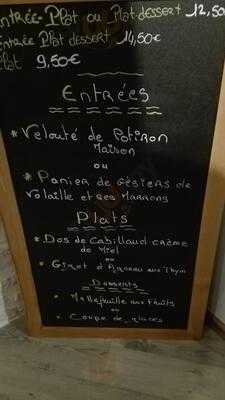 ntrée-Plat ou Plat dessert 12,50
ntrée Plat dessert 14,50€
lat 9,50€
Entrées
* Velouté de Potiron
Maison
ou
* Panier de gésiers de
volaille et ses Marrons
Plats
* Dos de Cabillaud crème
de Miel
ou
* Gigot d'Agneau aux Thym
Desserts
* Millefeuille aux fruits
ou
* Coupe de glaces